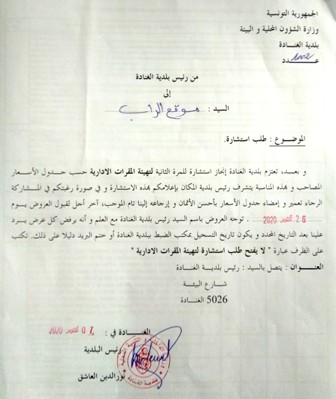 الجمهورية التونسية
وزارة الشؤون المحلية و البيئة
بلدية الغنادة
عـــدد
من رئيس بلدية الغنادة
إلى
السيد : موقع الواب
الموضوع : طلب استشارة.
و بعـــد، تعتزم بلدية الغنادة إنجاز استشارة للمرة الثانية لتهيئة المقرات الادارية حسب جدول الأسعار
المصاحب و هذه المناسبة يتشرف رئيس بلدية المكان بإعلامكم بهذه الاستشارة و في صورة رغبتكم في المشاركة
الرجاء تعمير و إمضاء جدول الأسعار بأحسن الأثمان و إرجاعه إلينا تام الموجب، آخر أجل لقبول العروض يوم
26 أكتوبر 2020 . توجه العروض باسم السيد رئيس بلدية الغنادة مع العلم و أنه يرفض كل عرض يرد
علينا بعد التاريخ المحدد و يكون تاريخ التسجيل بمكتب الضبط ببلدية الغنادة أو ختم البريد دليلا على ذلك. تكتب
على الظرف عبارة " لا يفتح طلب استشارة لتهيئة المقرات الادارية "
العنـــوان : يتصل بالسيد : رئيس بلديـــة الغنادة
شـــارع البيئـــة
5026 الغنادة
الغنادة في : 07 أكتوبر 2020
رئيس البلدية
نورالدين العاشق